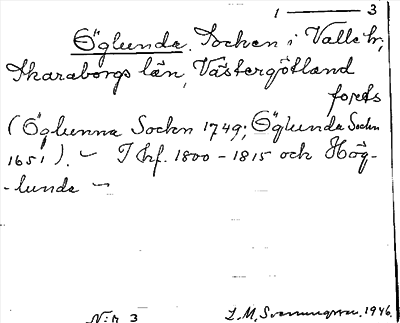 1 ——— 3
Öglunda. Socken i Valle hr,
Skaraborgs län, Västergötland
forts
(Öglunna Sockn 1749; Öglunda Sockn
1651). – I kf. 1800–1815 och Hög-
-lunda –
N:r 3 L.M. Svanungsson. 1946.